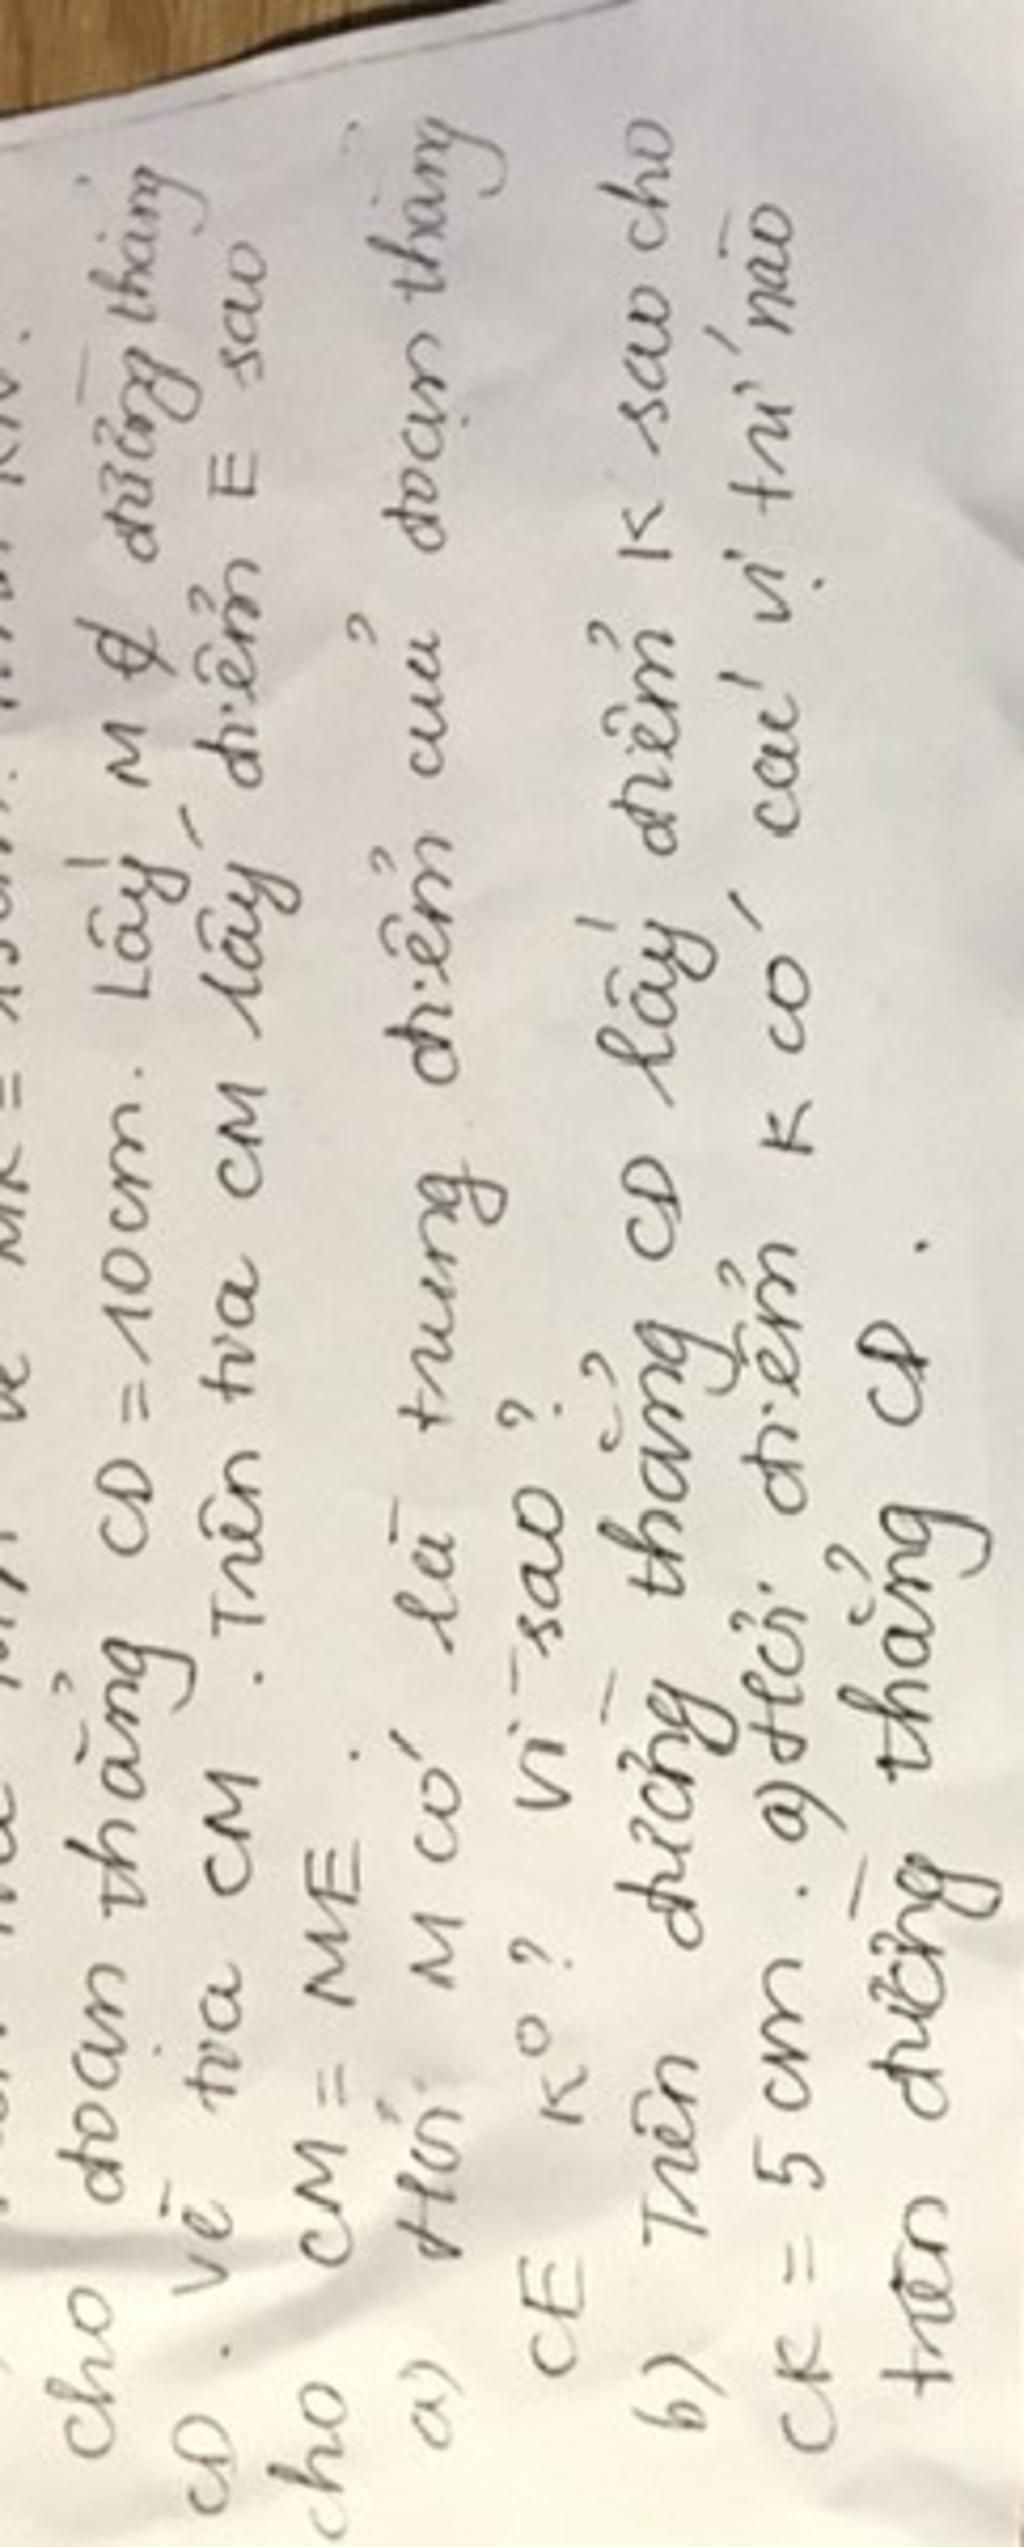 MK =
cho đoạn thẳng CD = 10cm. Lấy M ∉ đường thẳng
CD. vẽ tia CM. Trên tia CM lấy điểm E sao
cho CM = ME.
a) Hỏi M có là trung điểm của đoạn thẳng
CE K° ? Vì sao ?
b) Trên đường thẳng CD lấy điểm K sao cho
CK = 5 cm. a) Hỏi điểm K có các vị trí nào
trên đường thẳng CD.